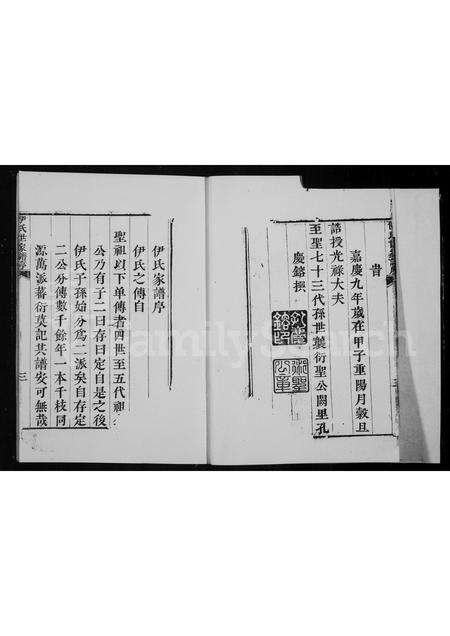 昔
嘉慶九年歲在甲子重陽月穀旦
誥授光祿大夫
至聖七十三代孫世襲衍聖公闕里孔
慶鎔撰
伊氏家譜序
伊氏之傳自
聖祖以下单傳者四世至五代祖
公乃有子二曰存曰定自是之後
伊氏子孫始分為二派矣自存定
二公分傳數千餘年一本千枝同
源萬派蕃衍莫記其譜安可無哉
三
FamilySearch